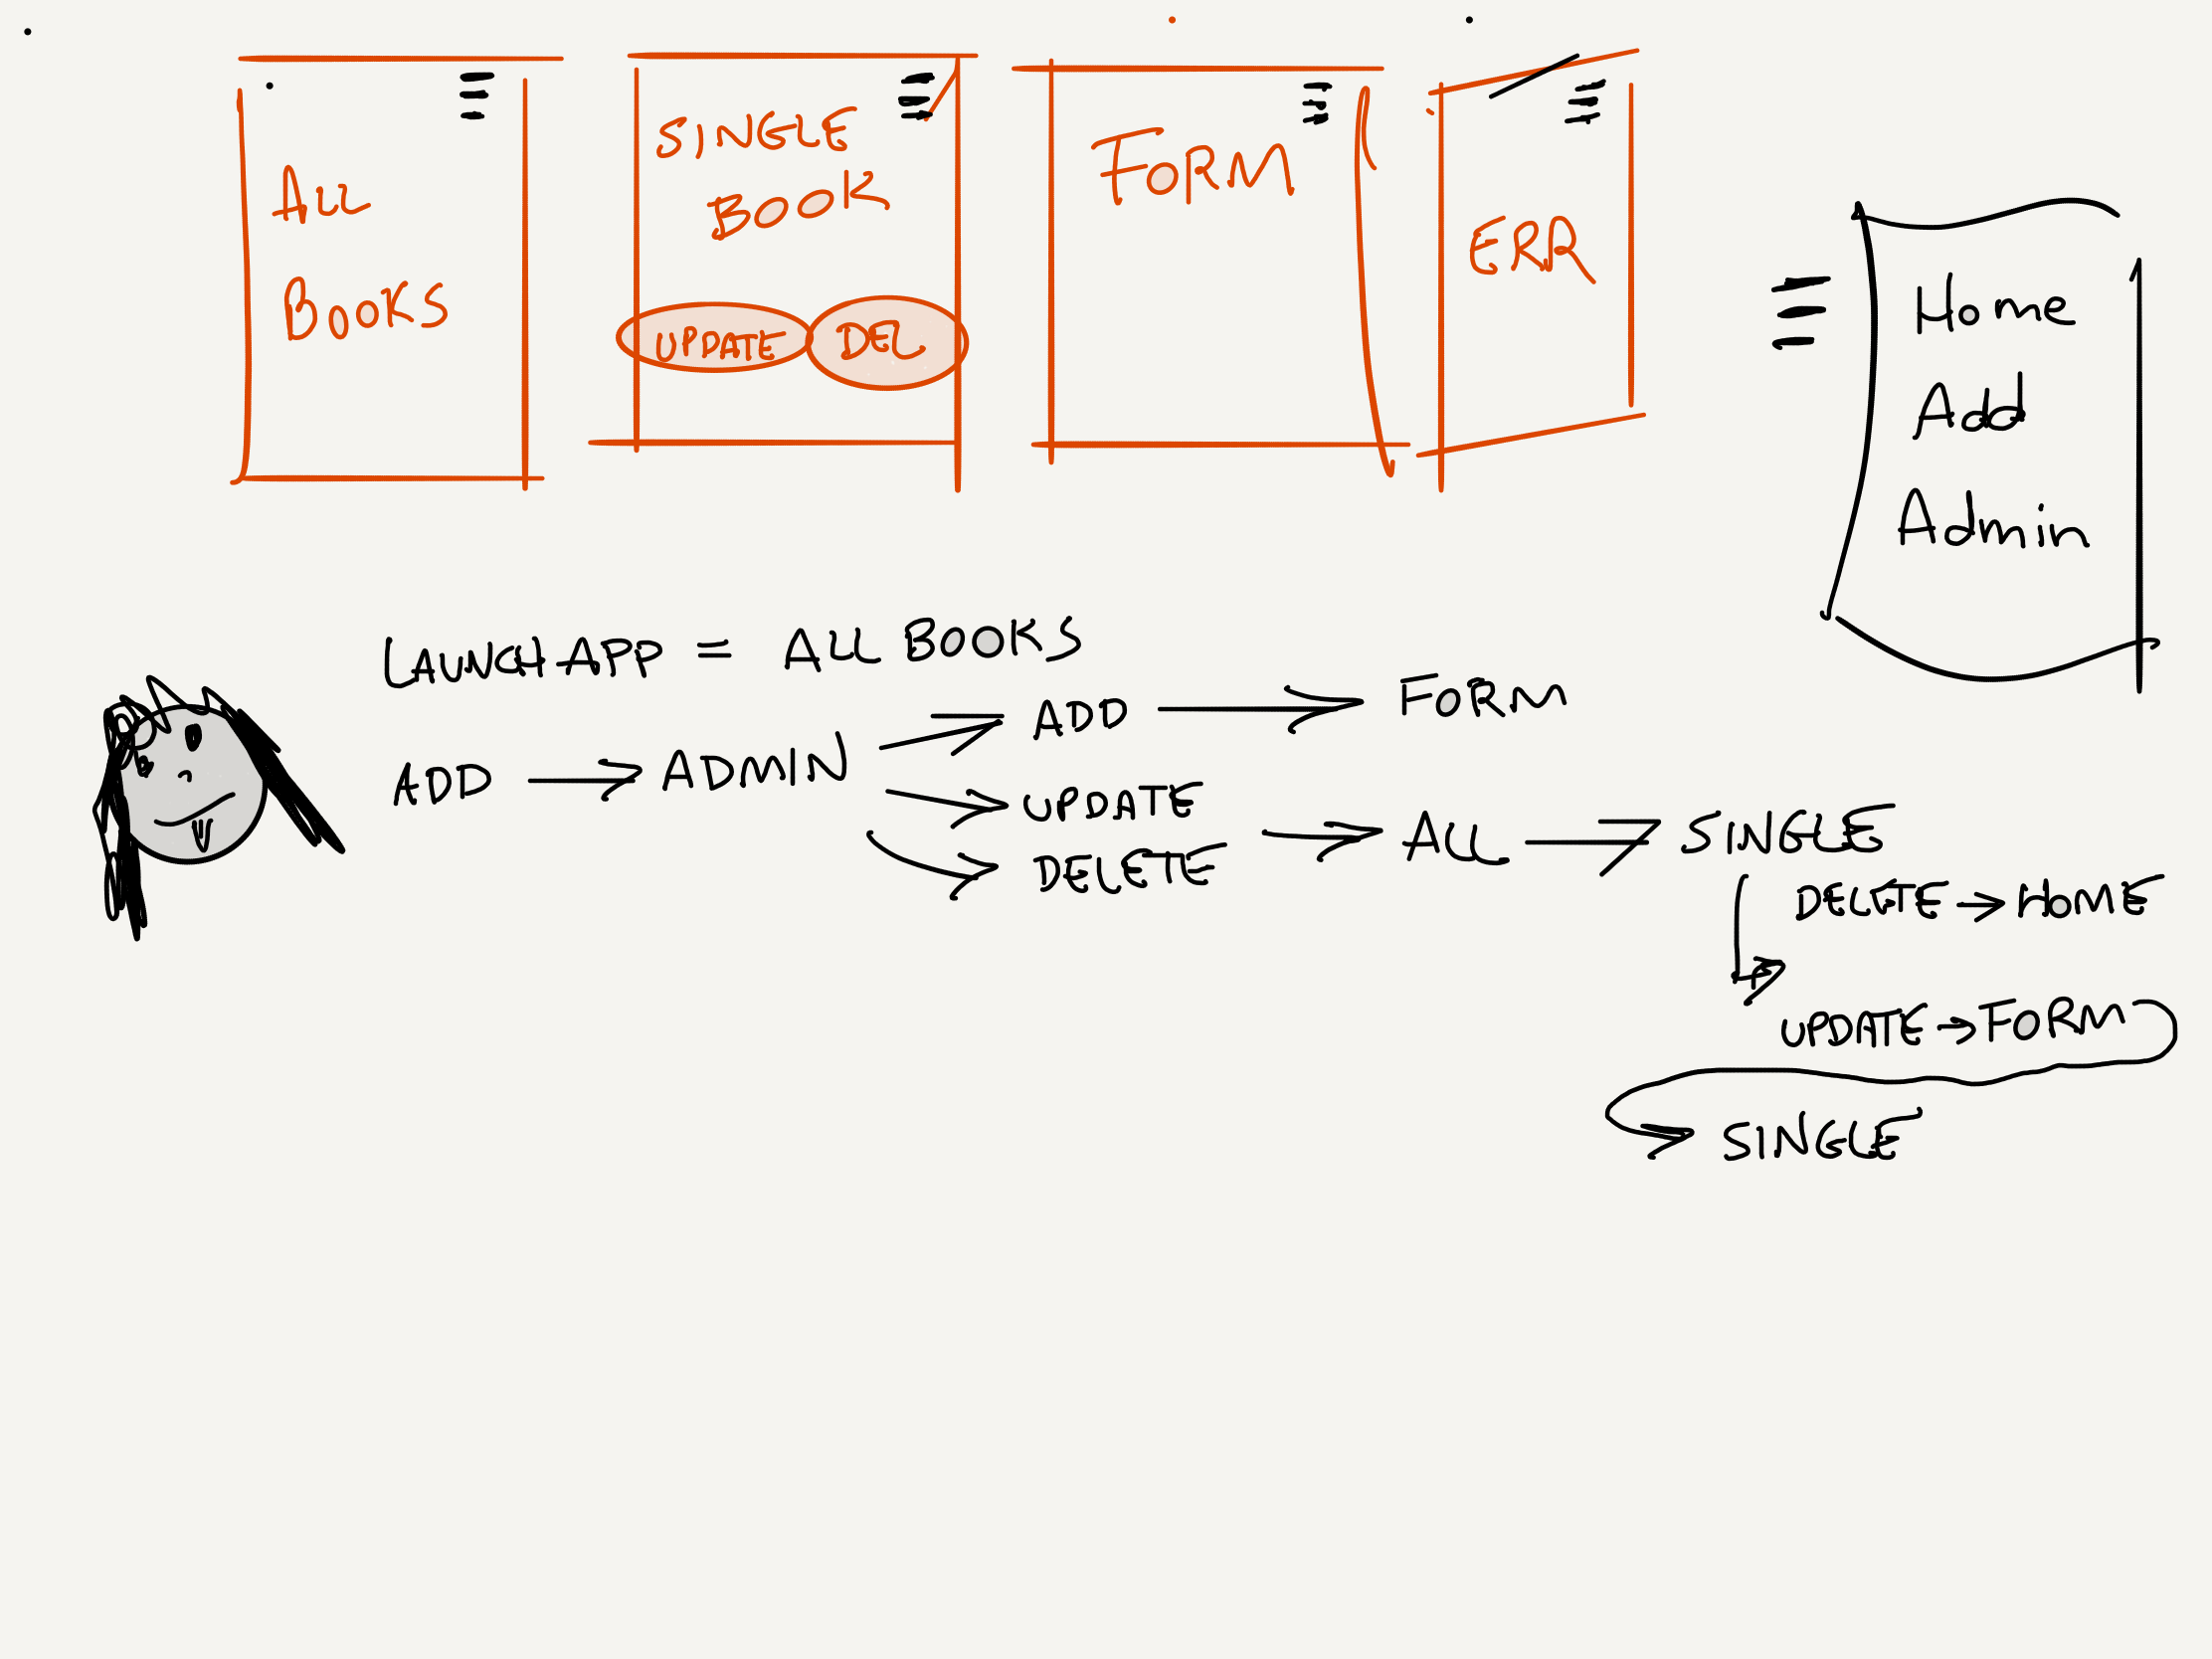 ALL
BOOKS
SINGLE
BOOK
UPDATE DEL
FORM
ERR
Home
Add
Admin
LAUNCH APP = ALL BOOKS
ADD → ADMIN → ADD → FORM
→ UPDATE
→ DELETE → ALL → SINGLE
DELETE → HOME
UPDATE → FORM
→ SINGLE